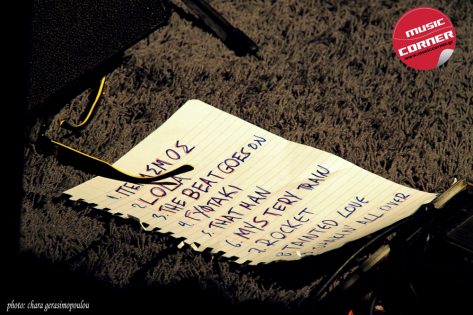 MUSIC
CORNER
www.musiccorner.gr
2. LOLA
3. THE BEAT GOES ON
4. ΓΥΑΛΑΚΙ
5. THAT MAN
6. MYSTERY TRAIN
7. ROCKET
8 TAINTED LOVE
ALL OVER
photo: chara gerasimopoulou